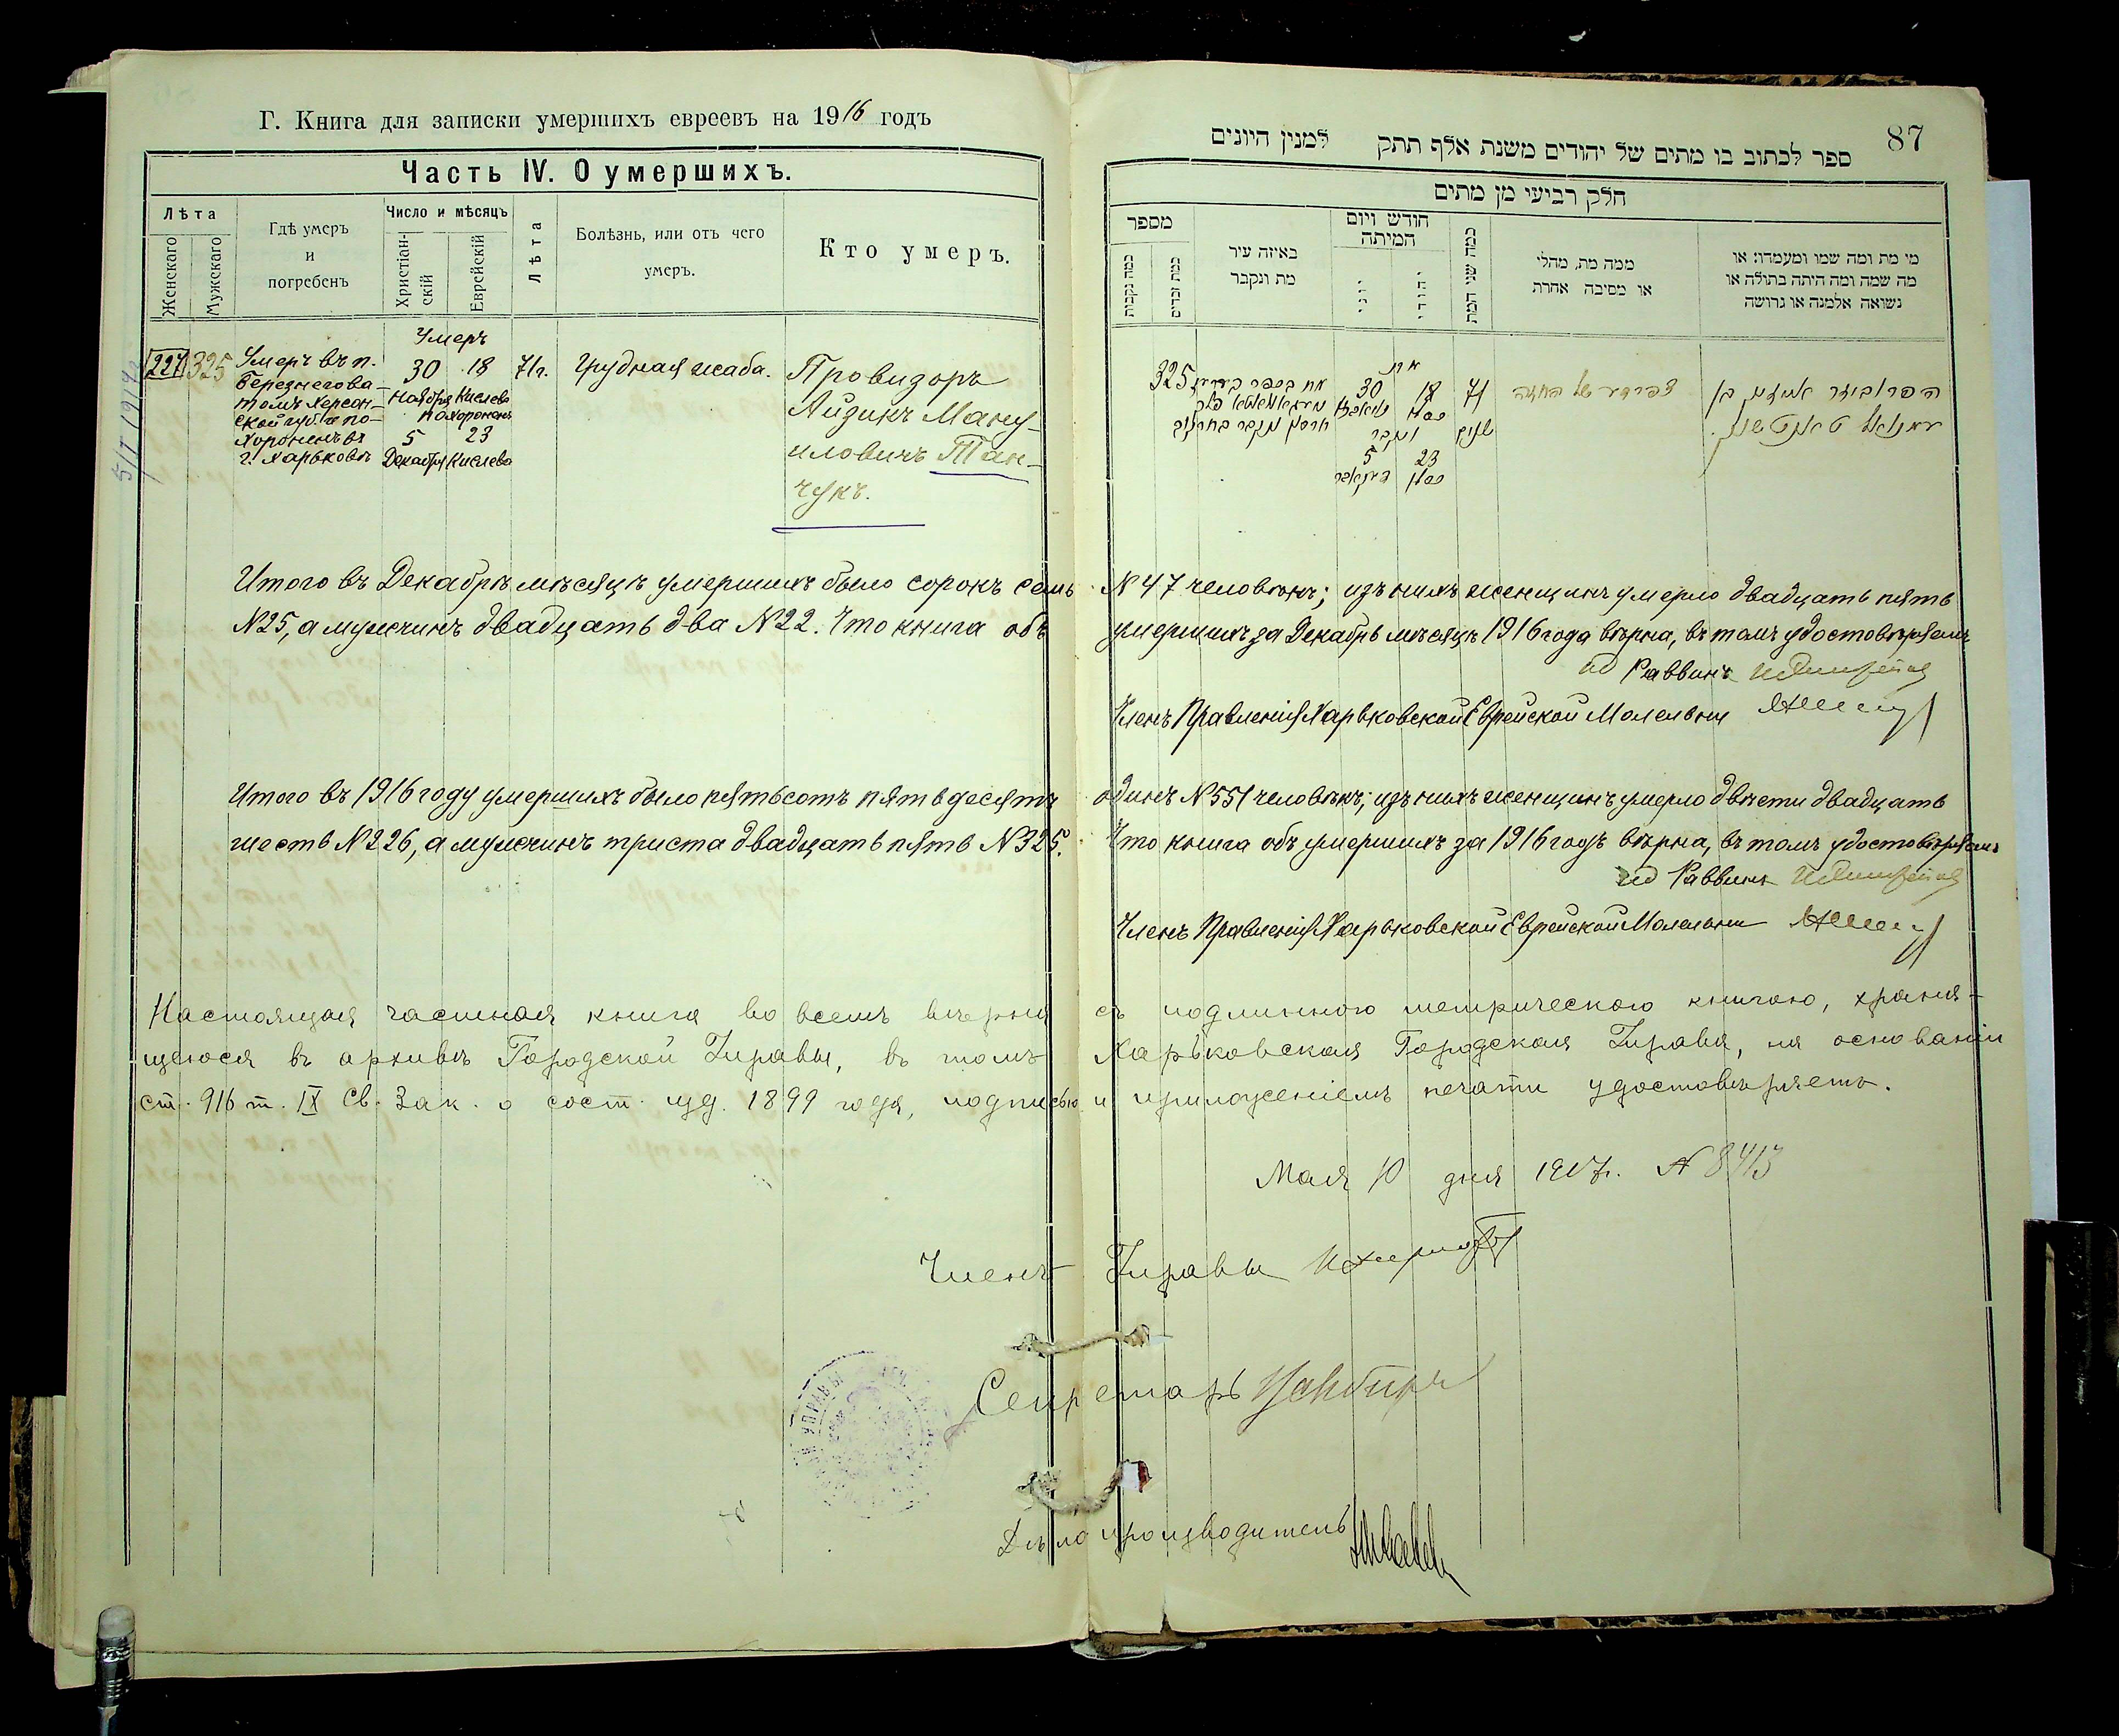 Г. Книга для записки умершихъ евреевъ на 1916 годъ
Часть IV. О умершихъ.
Лѣта
Женскаго
Мужскаго
Гдѣ умеръ
и
погребенъ
Число и мѣсяцъ
Христіан-
скій
Еврейскій
Лѣта
Болѣзнь, или отъ чего
умеръ.
Кто умеръ.
227
325
Умеръ въ п.
Березнегова-
томъ Херсон-
ской губ. а по-
хороненъ въ
г. Харьковѣ
Умеръ
30 18
Ноября Кислева
похороненъ
5 23
Декабря Кислева
71г.
Грудная жаба.
Провизоръ
Айзикъ Ману-
иловичъ Тан-
чукъ.
87
ספר לכתוב בו מתים של יהודים משנת אלף תתק למנין היונים
חלק רביעי מן מתים
מספר
כמה נקבות
כמה זכרים
באיזה עיר
מת ונקבר
חודש ויום
המיתה
יוני
יהודי
כמה שני המת
ממה מת, מחלי
או מסיבה אחרת
מי מת ומה שמו ומעמדו: או
מה שמה ומה היתה בתולה או
נשואה אלמנה או גרושה
325
מת
30 18
ונקבר
5 23
71
Итого въ Декабрѣ мѣсяцѣ умершихъ было сорокъ семь N 47 человѣкъ; изъ нихъ женщинъ умерло двадцать пять
N25, а мужчинъ двадцать два N22. Что книга объ умершихъ за Декабрь мѣсяцъ 1916 года вѣрна, въ томъ удостовѣряемъ
ид Раввинъ
Членъ Правленія Харьковской Еврейской Молельни
Итого въ 1916 году умершихъ было пятьсотъ пятьдесятъ одинъ N551 человѣкъ; изъ нихъ женщинъ умерло двѣсти двадцать
шесть N226, а мужчинъ триста двадцать пять N325. Что книга объ умершихъ за 1916 годъ вѣрна, въ томъ удостовѣряемъ
ид Раввинъ
Членъ Правленія Харьковской Еврейской Молельни
Настоящая частная книга во всемъ вѣрна съ подлинною метрическою книгою, храня-
щеюся въ архивѣ Городской Управы, въ томъ Харьковская Городская Управа, на основаніи
ст. 916 т. IX Св. Зак. о сост. изд. 1899 года, подписью и приложеніемъ печати удостовѣряетъ.
Мая 10 дня 1917г. N 8413
Членъ Управы
Секретарь
Дѣлопроизводитель